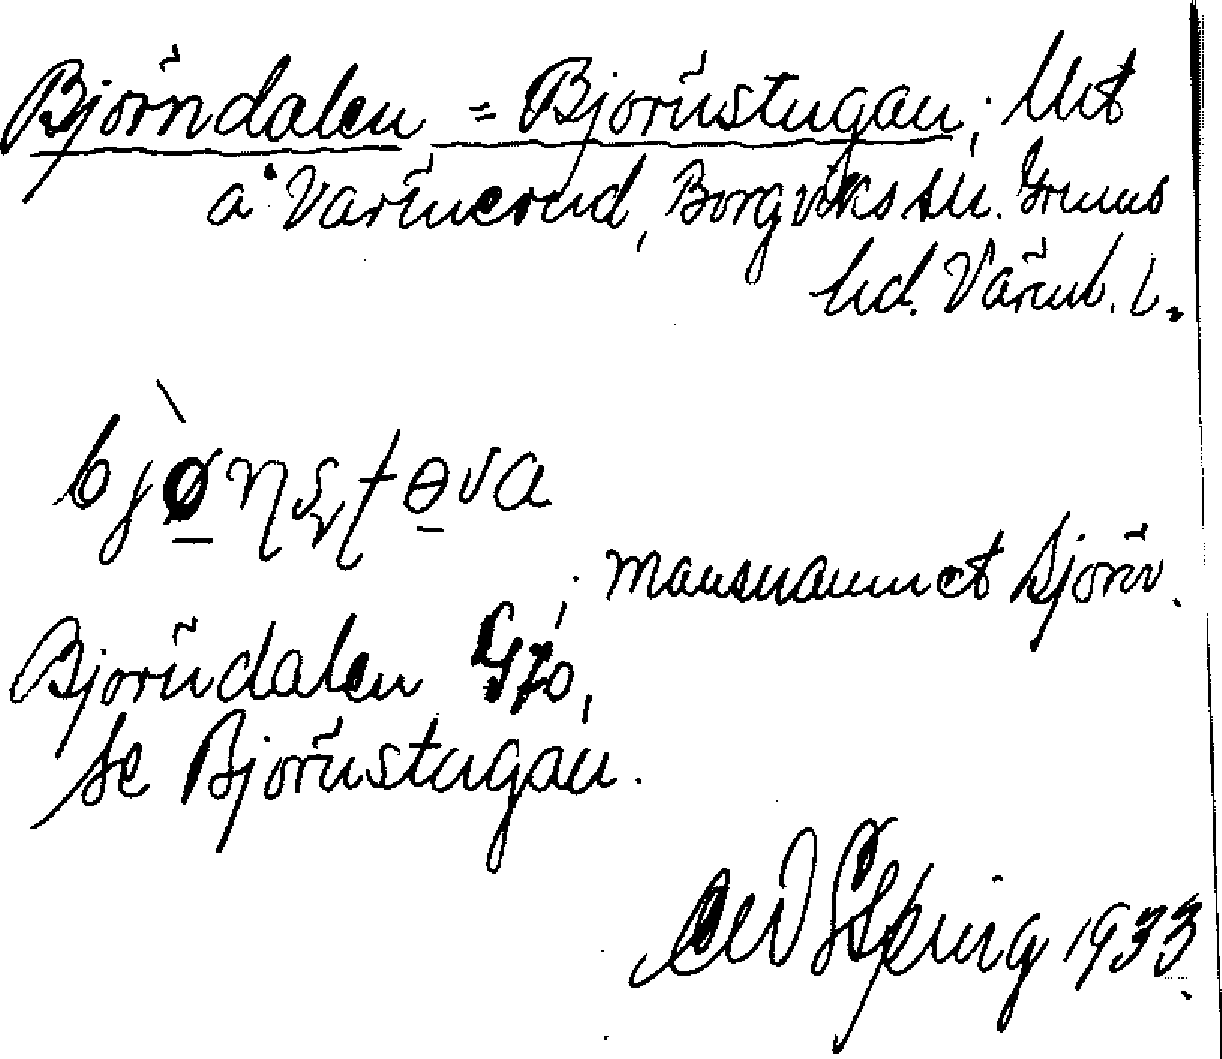 Björndalen = Björnstugan; Utt
å Värnerud, Borgviks sn. Grums
hd. Värml. l.
bjønstɵva
; mansnamnet Björn.
Björndalen
se Björnstugan.
1933